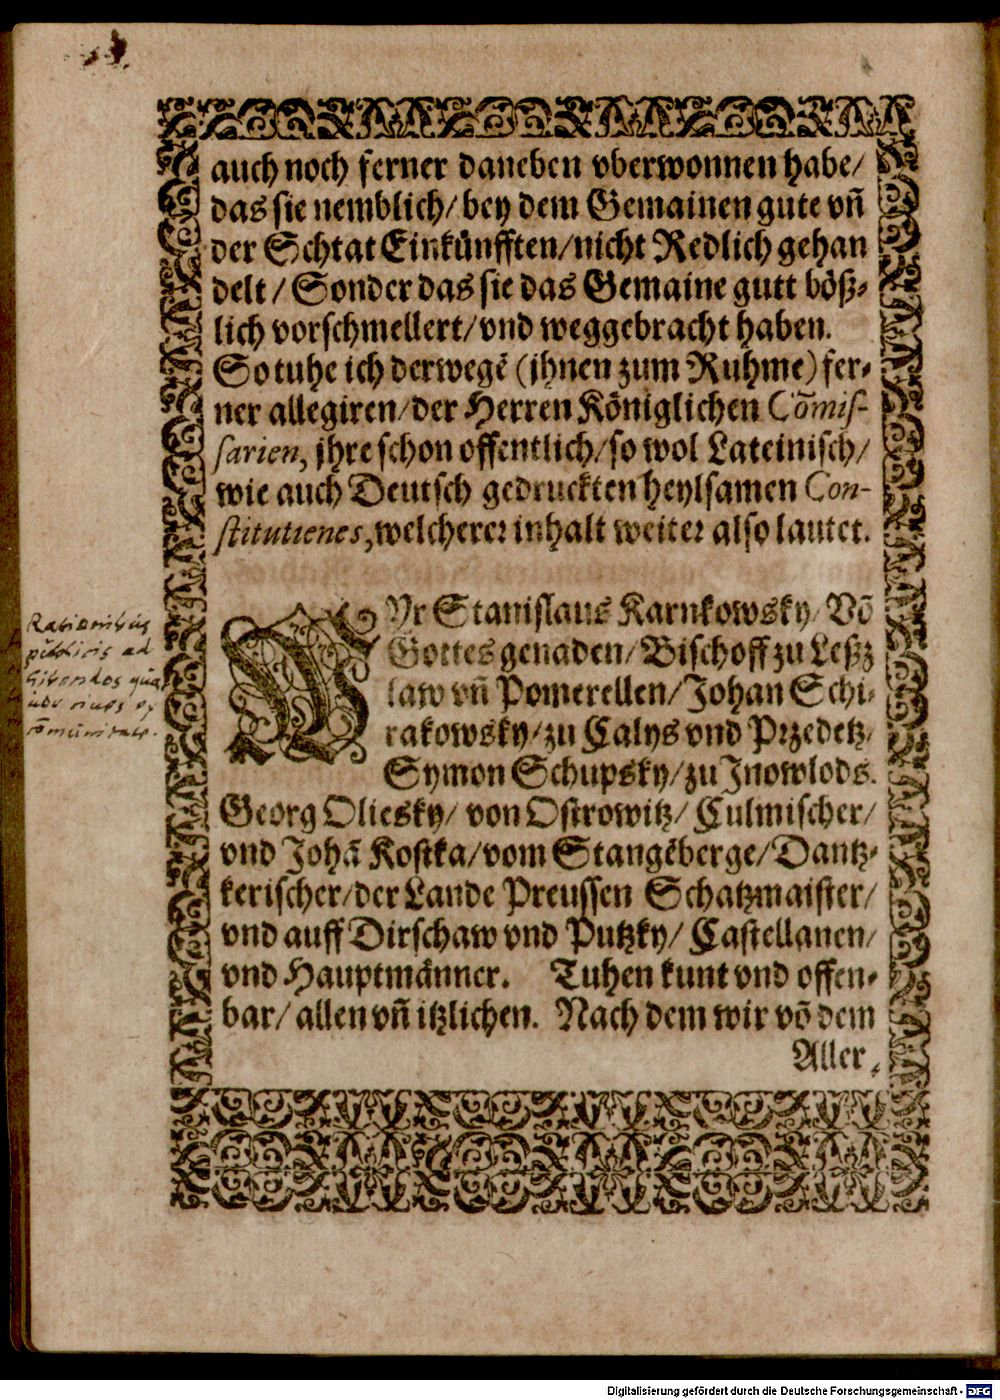 auch noch ferner daneben vberwonnen habe/
das sie nemblich/ bey dem Gemainen gute vñ
der Schtat Einkünfften/nicht Redlich gehan
delt/ Sonder das sie das Gemaine gutt böß⸗
lich vorschmellert/vnd weggebracht haben.
So tuhe ich derwegẽ (jhnen zum Ruhme) fer⸗
ner allegiren/der Herren Königlichen Com̃is-
sarien, jhre schon offentlich/so wol Lateinisch/
wie auch Deutsch gedruckten heylsamen Con-
stitutienes,welcherer inhalt weiter also lautet.
WYr Stanislaus Karnkowsky/ Võ
Gottes genaden/ Bischoff zu Leßz
law vñ Pomerellen/Johan Schi⸗
rakowsky/zu Calys vnd Przedetz/
Symon Schupsky/zu Jnowlods.
Georg Oliesky/ von Ostrowitz/ Culmischer/
vnd Johã Kostka/vom Stangẽberge/Dantz⸗
kerischer/der Lande Preussen Schatzmaister/
vnd auff Dirschaw vnd Putzky/ Castellanen/
vnd Hauptmänner. Tuhen kunt vnd offen⸗
bar/ allen vñ itzlichen. Nach dem wir võ dem
Aller⸗
Rationibus
publicis ad
Digitalisierung gefördert durch die Deutsche Forschungsgemeinschaft - DFG